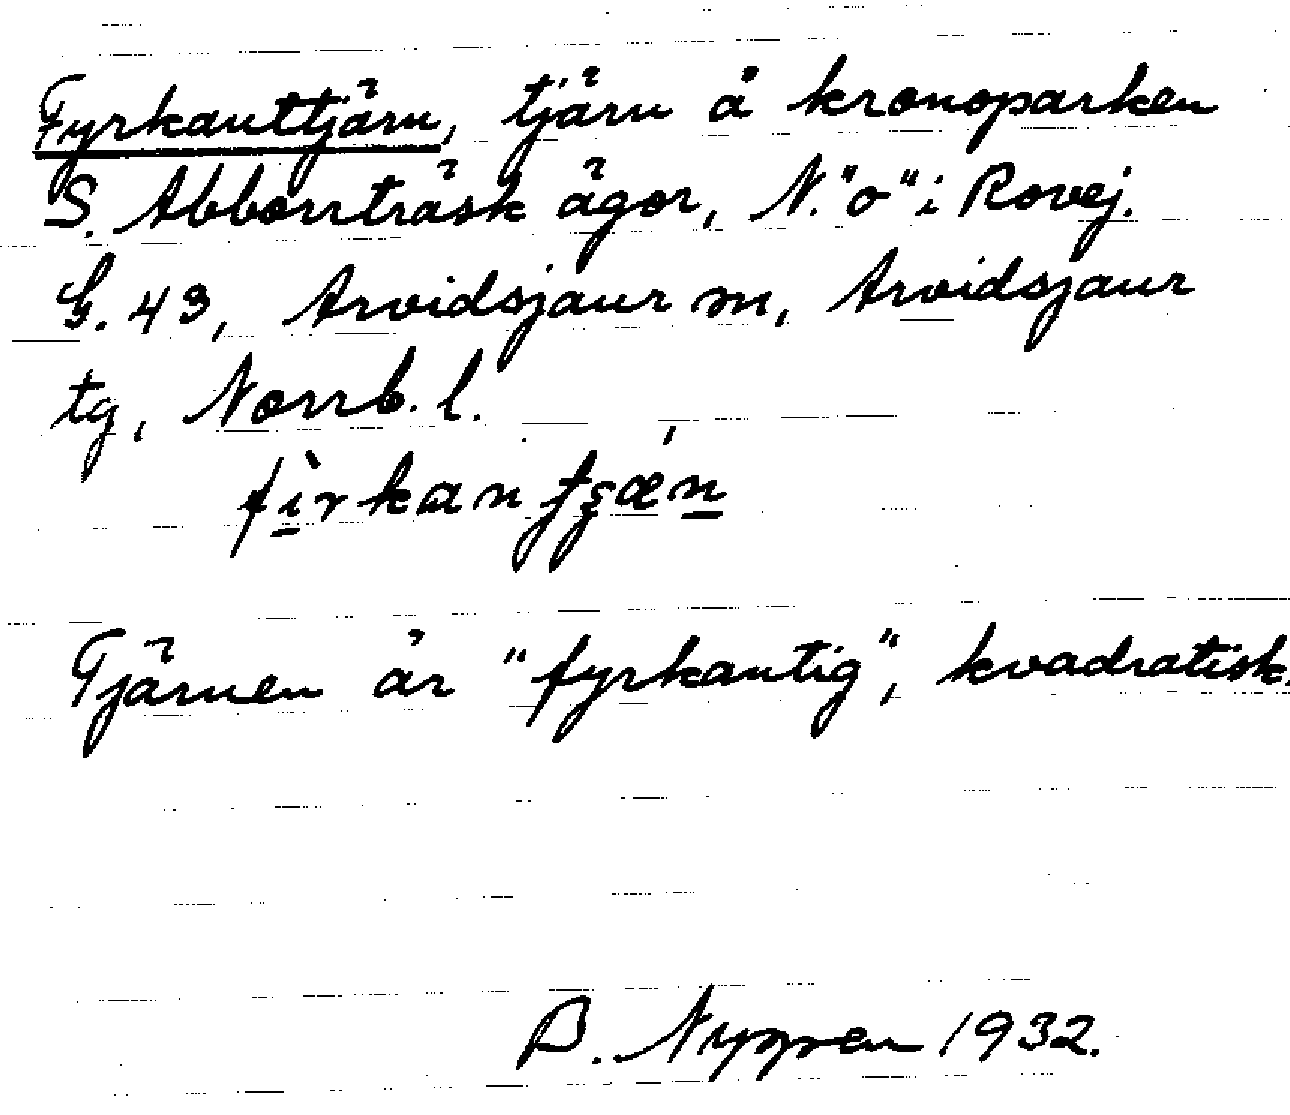 Fyrkanttjärn, tjärn å kronoparken
S. Abborrträsk ägor, N. "o" i Rovej.
G. 43, Arvidsjaur sn, Arvidsjaur
tg, Norrb. l.
fìrkantʂæ´n
Tjärnen är "fyrkantig", kvadratisk.
B. Nygren 1932.